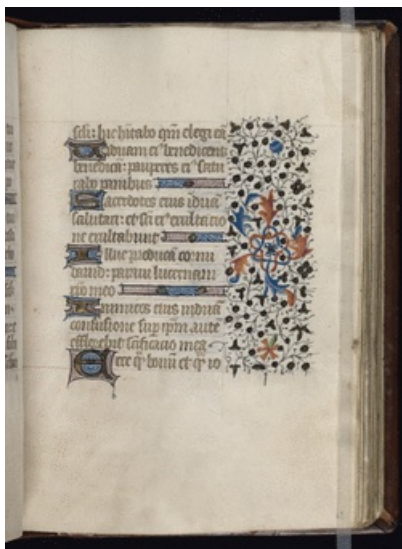 seculi: hic hitabo qm elegi eā
Viduam ei' benedicens
benedicā: pauperes ei' satu
rabo panibus
Sacerdotes eius induā
salutari: et sci ei' exultacio
ne exultabunt
Illuc producā cornu
david: paravi lucernam
xp̄o meo
Inimicos eius induā
confusione sup ipm aute
efflorebit scificacio mea
Ecce q̄ bonū et q̄ io